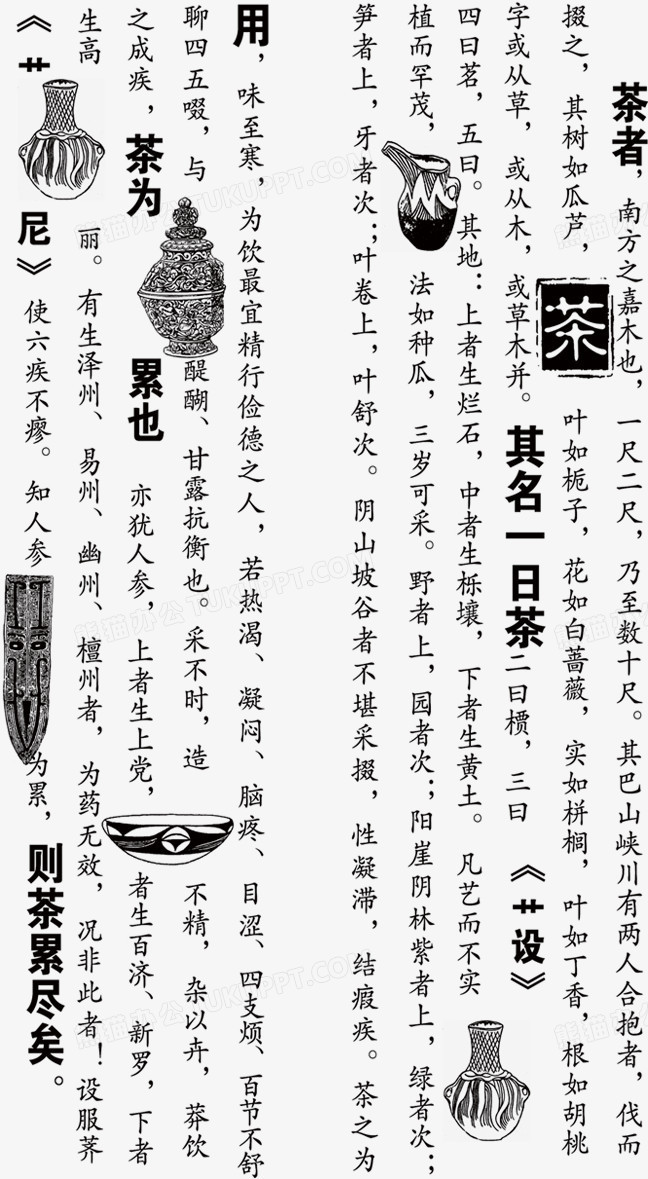 茶者，南方之嘉木也，一尺二尺，乃至数十尺。其巴山峡川有两人合抱者，伐而
掇之，其树如瓜芦，叶如栀子，花如白蔷薇，实如栟榈，叶如丁香，根如胡桃
茶
字或从草，或从木，或草木并。其名一日茶二曰槚，三曰《艹设》
四曰茗，五曰。其地：上者生烂石，中者生栎壤，下者生黄土。凡艺而不实
植而罕茂，法如种瓜，三岁可采。野者上，园者次；阳崖阴林紫者上，绿者次；
笋者上，牙者次；叶卷上，叶舒次。阴山坡谷者不堪采掇，性凝滞，结瘕疾。茶之为
用，味至寒，为饮最宜精行俭德之人，若热渴、凝闷、脑疼、目涩、四支烦、百节不舒
聊四五啜，与醍醐、甘露抗衡也。采不时，造不精，杂以卉，莽饮
之成疾，茶为累也亦犹人参，上者生上党，者生百济、新罗，下者
生高丽。有生泽州、易州、幽州、檀州者，为药无效，况非此者！设服荠
《艹尼》使六疾不瘳。知人参为累，则茶累尽矣。
熊猫办公 TUKUPPT.COM